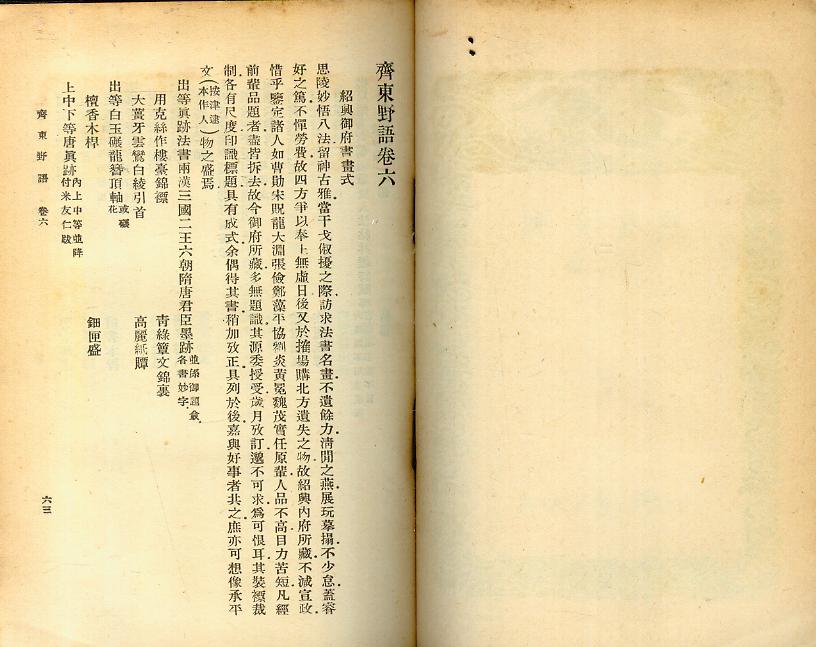 齊東野語卷六
紹興御府書畫式
思陵妙悟八法留神古雅當干戈俶擾之際訪求法書名畫不遺餘力淸閒之燕展玩摹搨不少怠蓋睿
好之篤不憚勞費故四方爭以奉上無虛日後又於搉場購北方遺失之物故紹興內府所藏不減宣政
惜乎鑒定諸人如曹勛宋貺龍大淵張儉鄭藻平協劉炎黃冕魏茂實任原輩人品不高目力苦短凡經
前輩品題者盡皆拆去故今御府所藏多無題識其源委授受歲月攷訂邈不可求爲可恨耳其裝褾裁
制各有尺度印識標題具有成式余偶得其書稍加攷正具列於後嘉與好事者共之庶亦可想像承平
文(按津逮本作人)物之盛焉
出等眞跡法書兩漢三國二王六朝隋唐君臣墨跡並係御題僉各書妙字
用克絲作樓臺錦褾 靑綠簟文錦裏
大薑牙雲鸞白綾引首 高麗紙贉
出等白玉碾龍簪頂軸或碾花
檀香木桿 鈿匣盛
上中下等唐眞跡內上中等並降付米友仁跋
齊東野語 卷六
六三